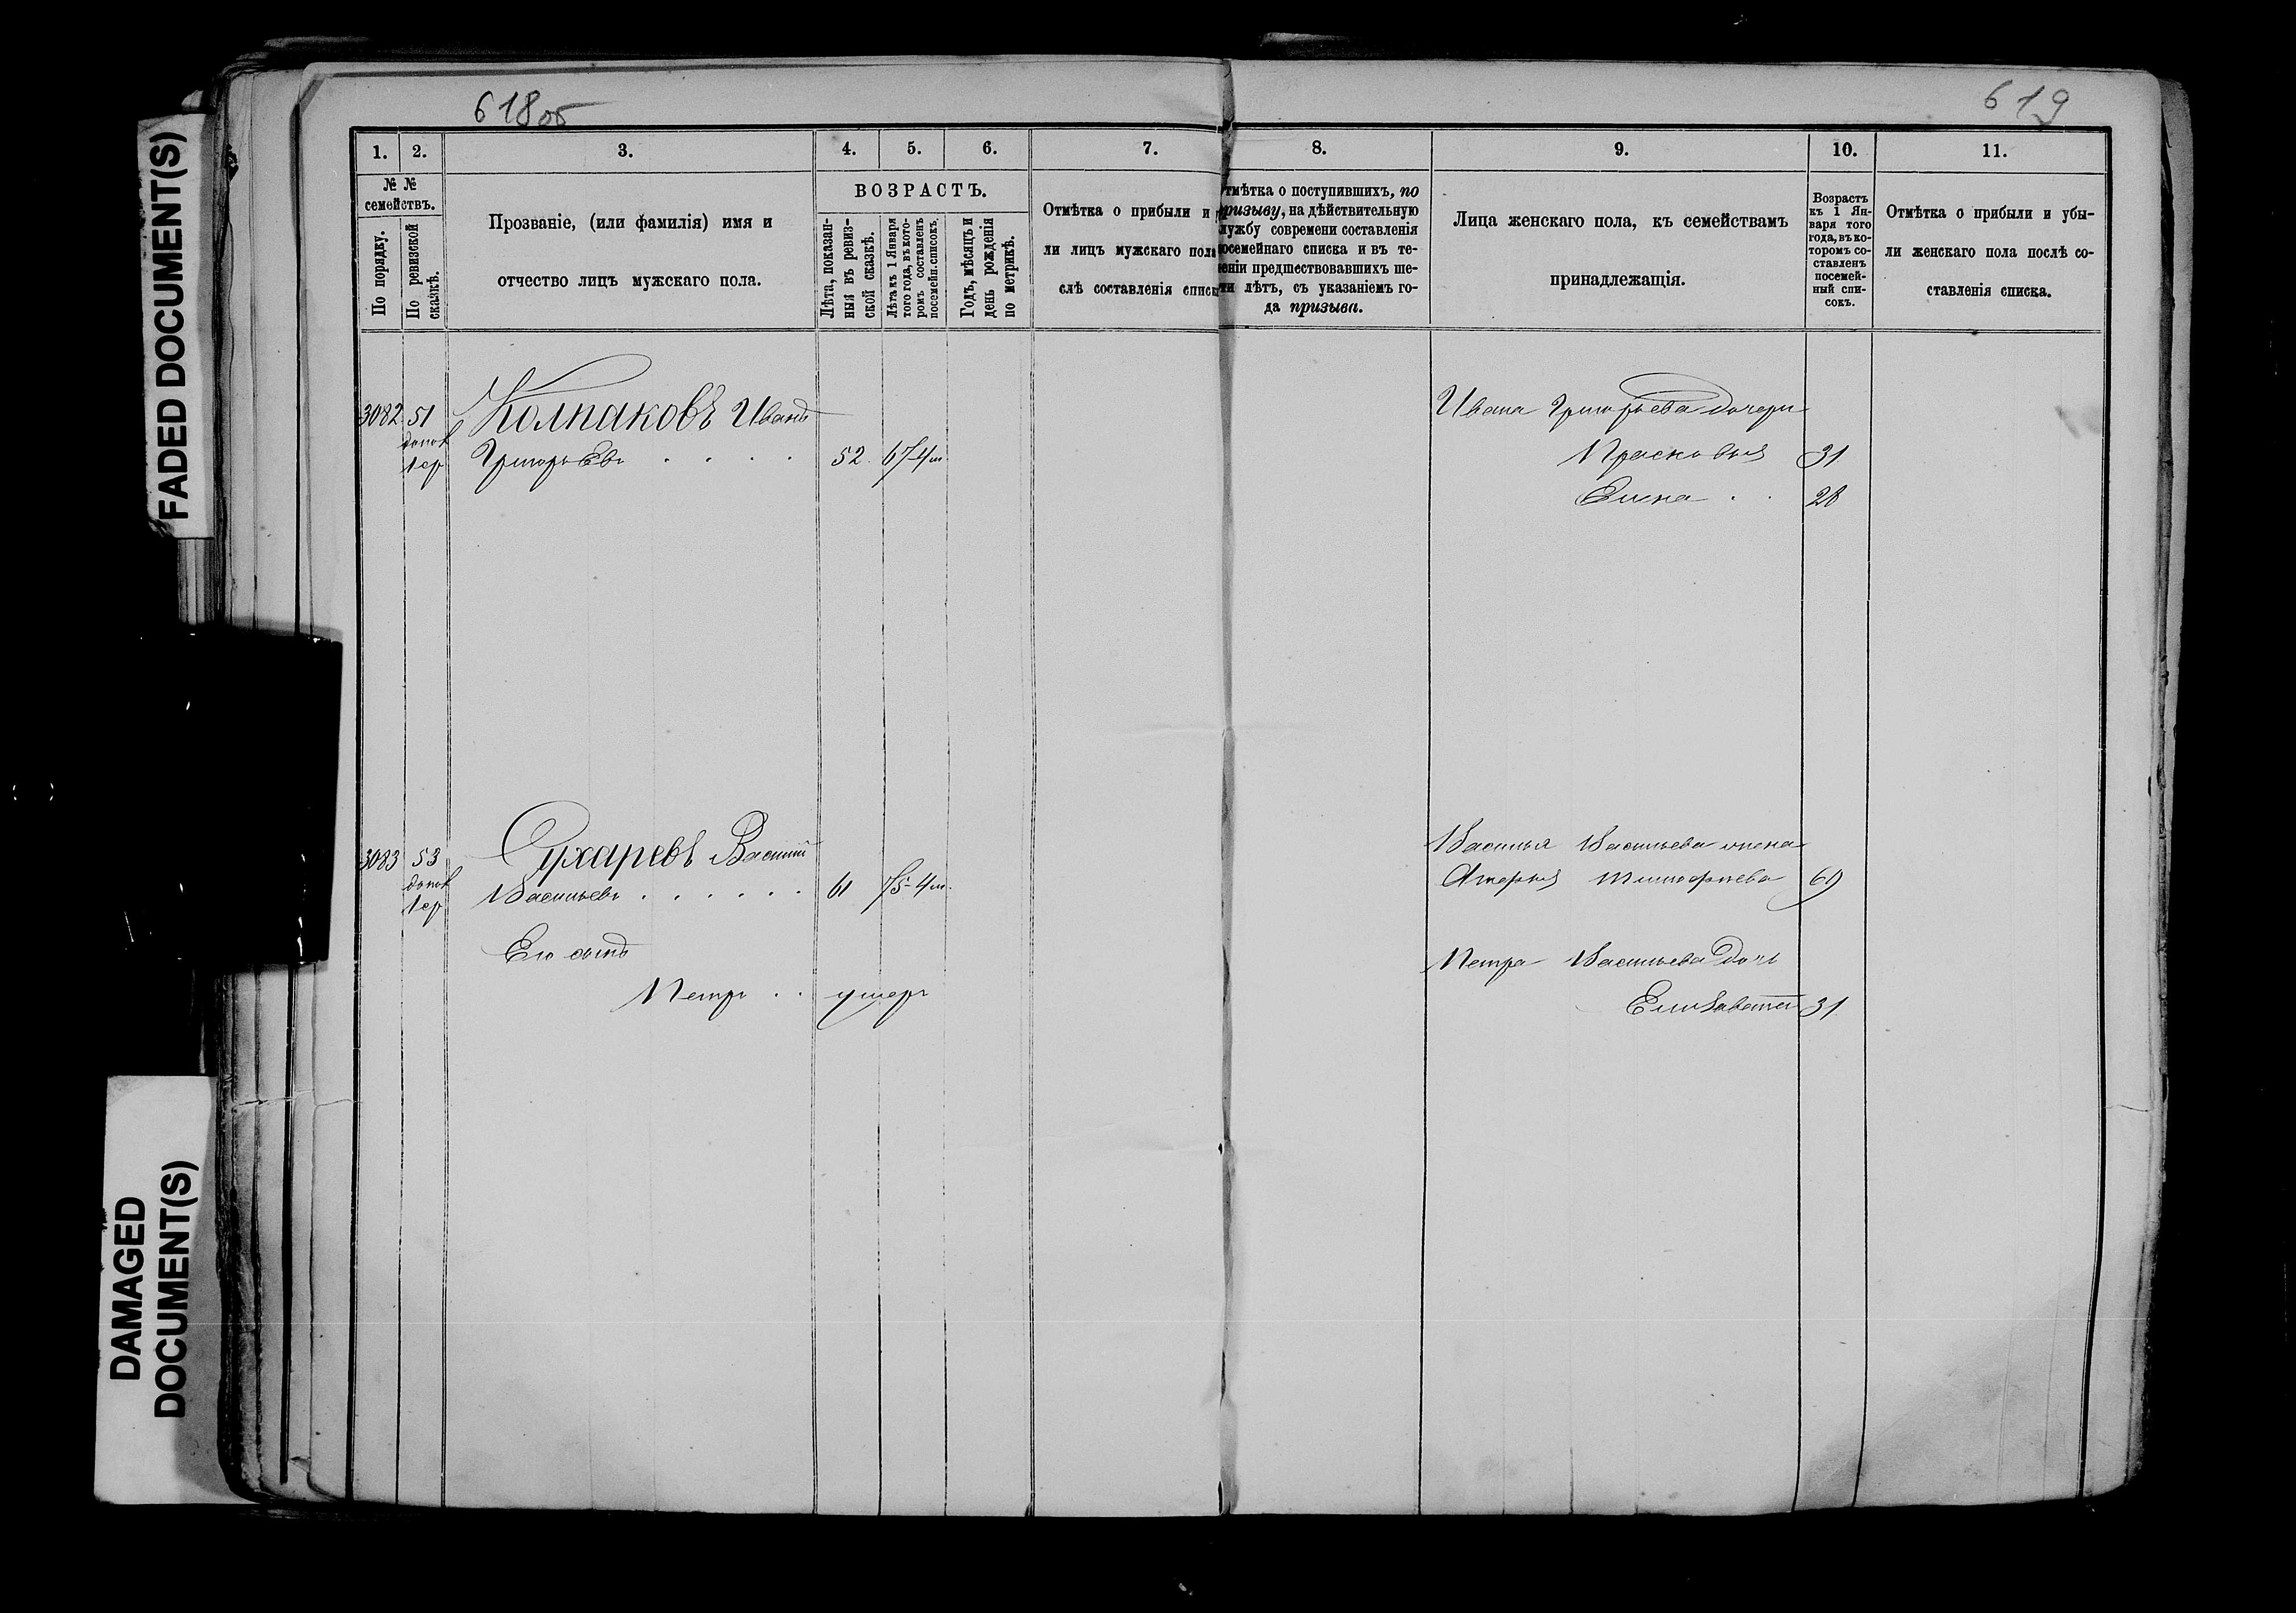 FADED DOCUMENT(S)
DAMAGED
DOCUMENT(S)
618об
619
1. 2. 3. 4. 5. 6. 7. 8. 9. 10. 11.
№ №
семействъ.
По порядку.
По ревизской
сказкѣ.
Прозваніе, (или фамилія) имя и
отчество лицъ мужскаго пола.
ВОЗРАСТЪ.
Лѣта, показан-
ныя въ ревиз-
ской сказкѣ.
Лѣта къ 1 Января
того года, въ кото-
ромъ составленъ
посемейн. списокъ.
Годъ, мѣсяцъ и
день рожденія
по метрикѣ.
Отмѣтка о прибыли и
ли лицъ мужскаго пола
слѣ составленія списк
тмѣтка о поступившихъ, по
призыву, на дѣйствительную
лужбу современи составленія
осемейнаго списка и въ те-
еніи предшествовавшихъ ше-
ти лѣтъ, съ указаніемъ го-
да призыва.
Лица женскаго пола, къ семействамъ
принадлежащія.
Возрастъ
къ 1 Ян-
варя того
года, въ ко-
торомъ со-
ставленъ
посемей-
ный спи-
сокъ.
Отмѣтка о прибыли и убы-
ли женскаго пола послѣ со-
ставленія списка.
3082 51 Колпаковъ Иванъ
Григорьевъ . . . . 52 67
Ивана Григорьева дочери
Прасковья 31
Елена . . 28
3083 53 Сухаревъ Василій
Васильевъ . . . . . . 61 75
Его сынъ
Петръ . . умеръ
Василья Васильева жена
69
Петра Васильева дочь
Елизавета 31